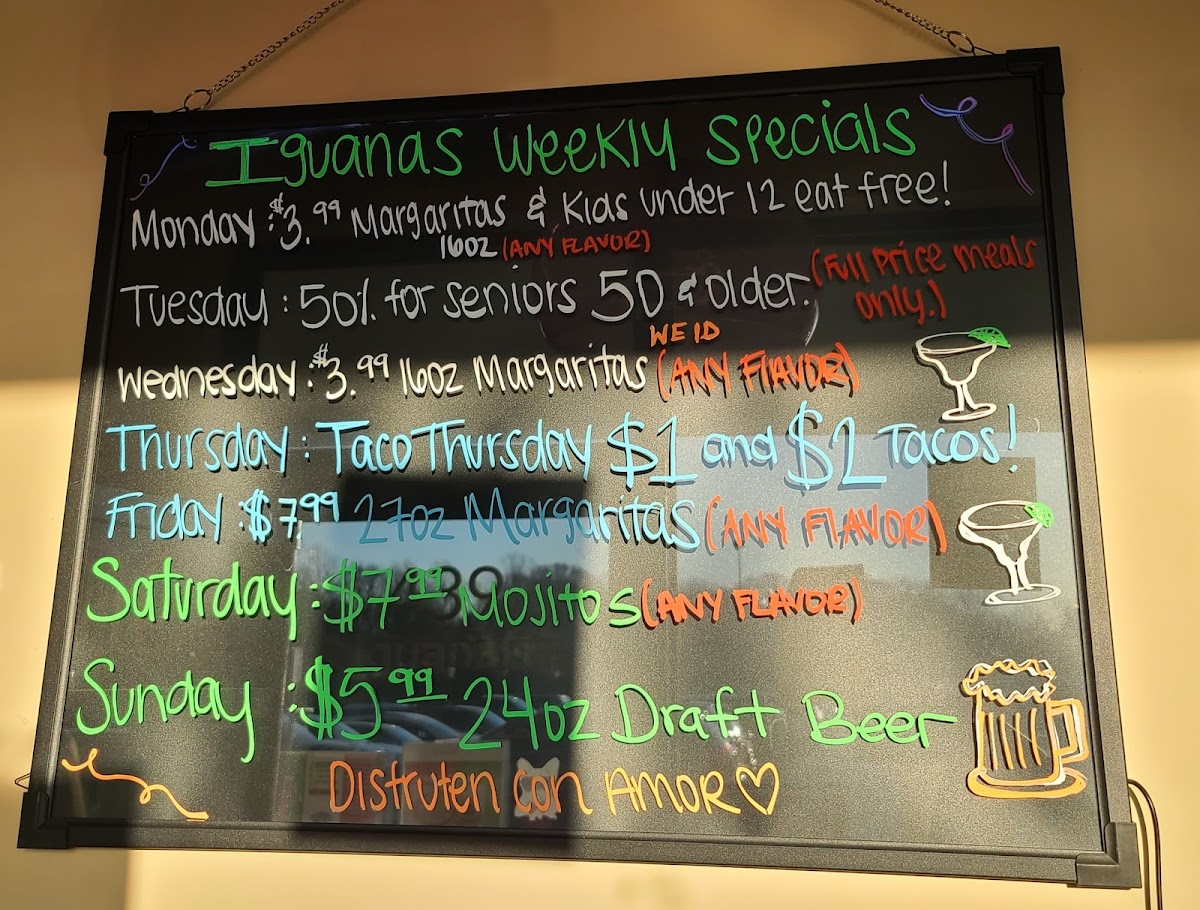 Iguanas Weekly Specials
Monday :$3.99 Margaritas & Kids under 12 eat free!
16oz (ANY FLAVOR)
Tuesday : 50% for seniors 50 & older. (Full Price meals only.)
WE ID
Wednesday :$3.99 16oz Margaritas (ANY FLAVOR)
Thursday : Taco Thursday $1 and $2 Tacos!
Friday :$7.99 27oz Margaritas (ANY FLAVOR)
Saturday :$7.99 Mojitos (ANY FLAVOR)
Sunday :$5.99 24oz Draft Beer
Disfruten con AMOR